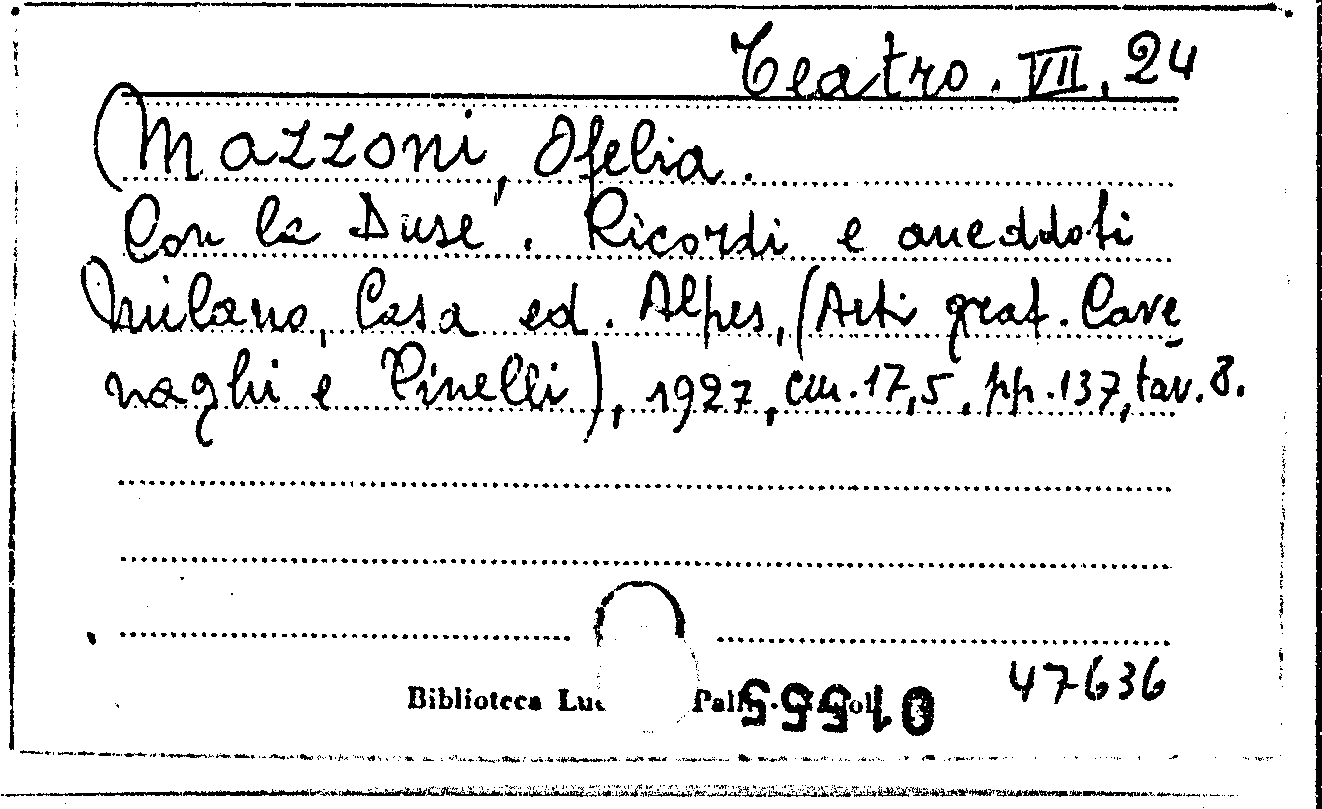 Teatro. VII. 24
Mazzoni, Ofelia.
Con la Duse. Ricordi e aneddoti
Milano, Casa ed. Alpes, (Arti graf. Cave
naghi e Pinelli), 1927, cm. 17,5. pp. 137, tav. 8.
47636
Biblioteca